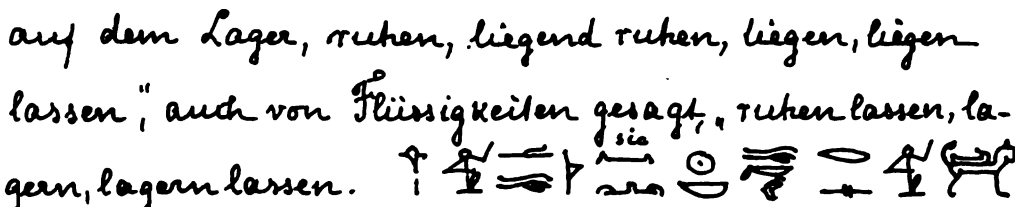 auf dem Lager, ruhen, liegend ruhen, liegen, liegen
lassen", auch von Flüssigkeiten gesagt, „ruhen lassen, la-
sic
gern, lagern lassen.